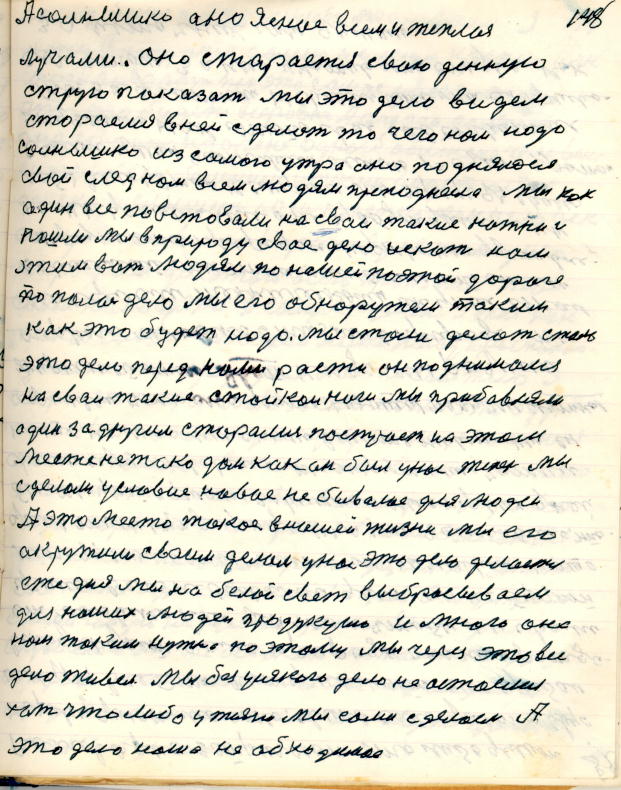 148
А солнышко ано ясное всем и теплая
лучами. Оно старается свою денную
струю показат мы это дело видем
стораемся в ней сделат то чего нам надо
солнышко из самого утра ано поднялося
свой след нам всем людям преподнесла мы как
адин все повставали на сваи такие натки и
пошли мы в природу свае дело искат нам
этим вот людям по нашей по этой дороге
то папал дело мы его обнаружели таким
как это будет надо. мы стали делат стало
это дело перед нами расти он поднимался
на сваи такие стойкои ноги мы прибавляли
адин за другим старался поступает на этом
месте не тако дом как ан был у нас мы
сделали условие новае не бывалое для людей
А это место такое в нашей жизни мы его
акружили своим делом у нас это дело делается
дня мы на белой свет выбрасываем
для наших людей продукцию и много она
нам таким нужна поэтому мы через это все
дело живем мы без уяякого дело не астаемся
хат что либо у мы сами сделаем А
это дело наше не обходимае